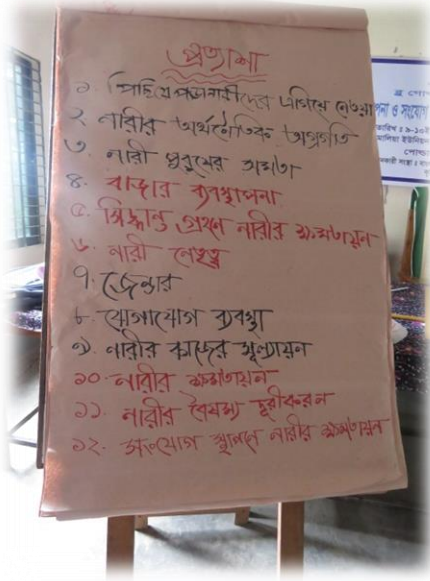 প্রত্যাশা
১. পিছিয়ে পড়া নারীদের এগিয়ে নেওয়া
২. নারীর অর্থনৈতিক অগ্রগতি
৩. নারী পুরুষের সমতা
৪. বাজার ব্যবস্থাপনা
৫. সিদ্ধান্ত গ্রহণে নারীর ক্ষমতায়ন
৬. নারী নেতৃত্ব
৭. জেন্ডার
৮. যোগাযোগ ব্যবস্থা
৯. নারীর কাজের মূল্যায়ন
১০. নারীর ক্ষমতায়ন
১১. নারীর বৈষম্য দূরীকরন
১২. সংযোগ স্থাপনে নারীর ক্ষমতায়ন
পনা ও সংযোগ
তারিখ : ৯-১০ই